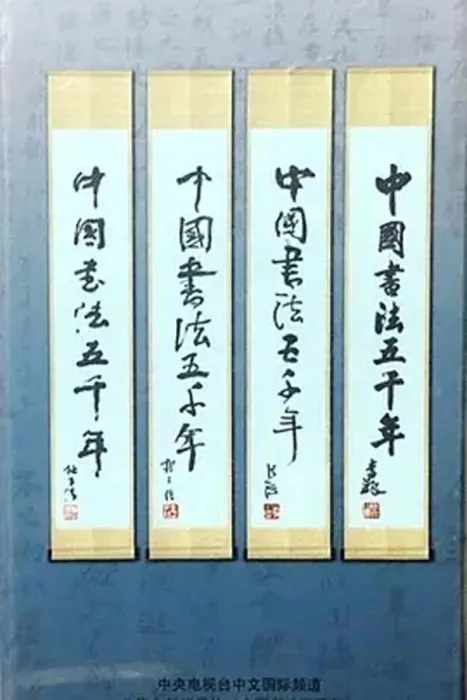 中國書法五千年
李鐸
中國書法五千年
沈鵬
中國書法五千年
中國书法五千年
中央电视台中文国际频道